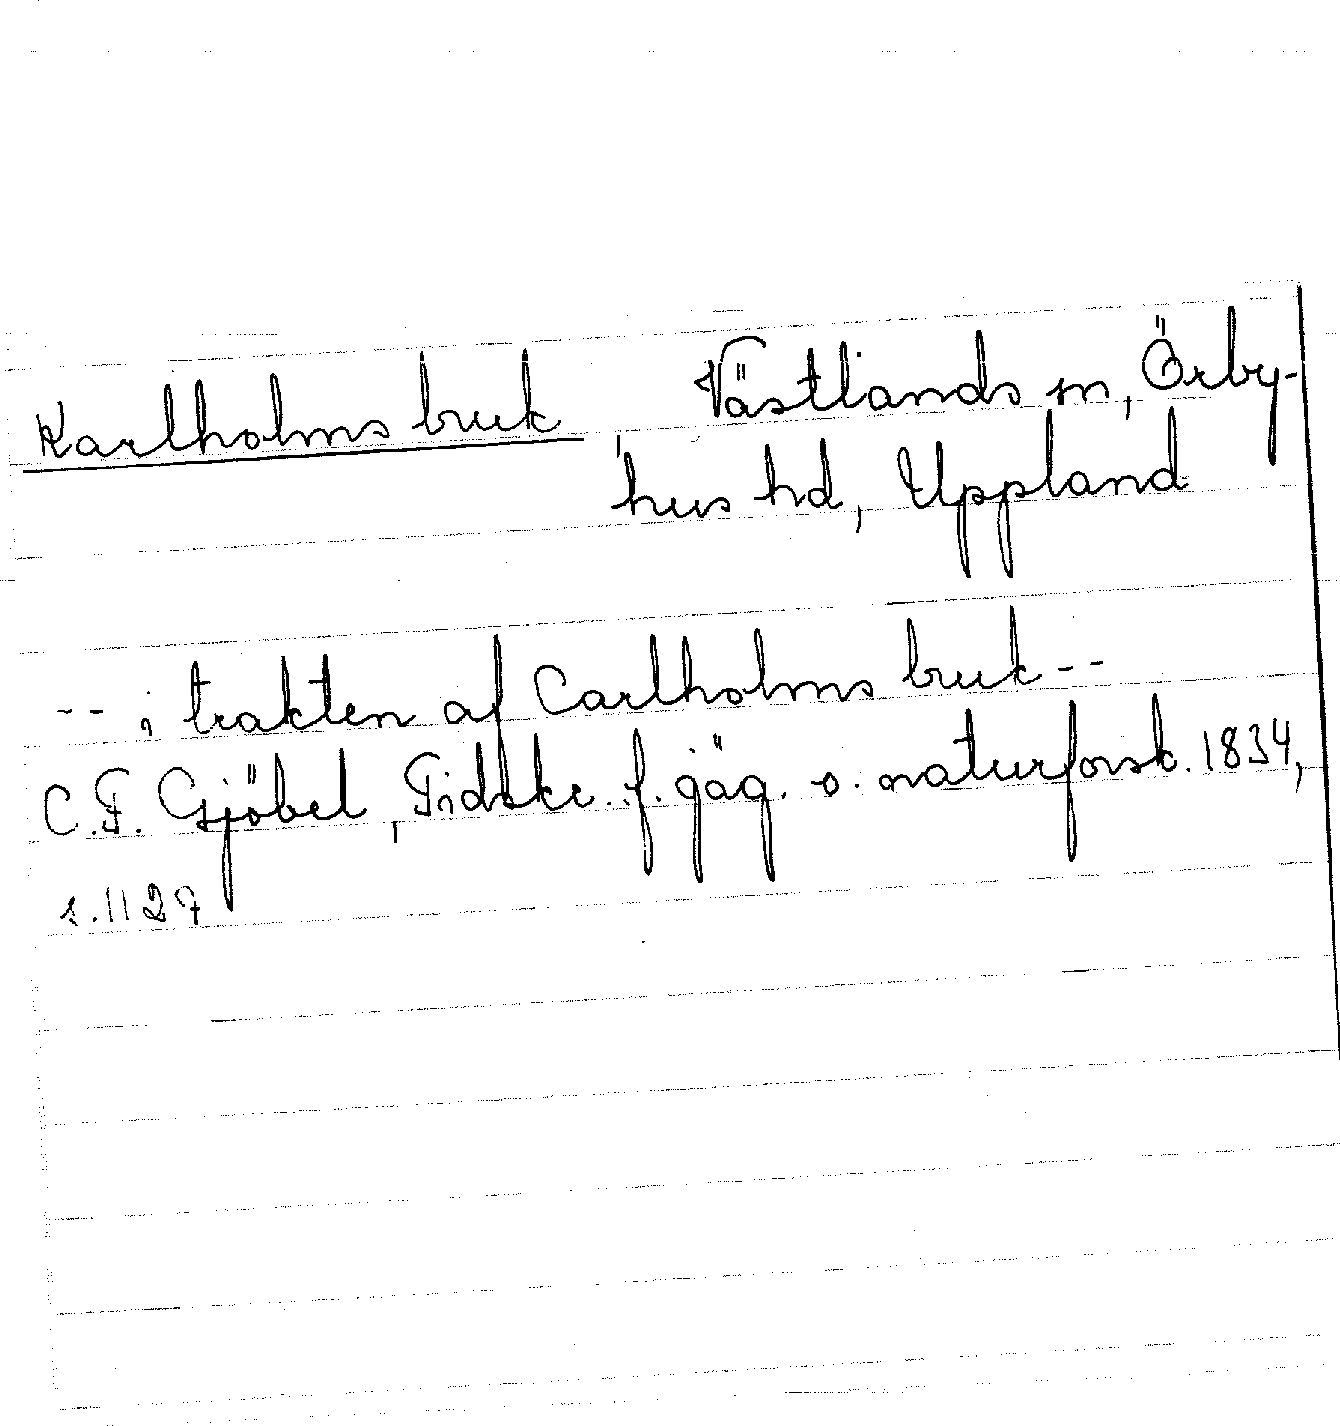 Karlholms bruk, Västlands sn, Örby-
hus hd, Uppland
-- i trakten af Carlholms bruk --
C.F. Gjöbel, Tidskr. f. jäg. o. naturforsk. 1834,
s. 1127